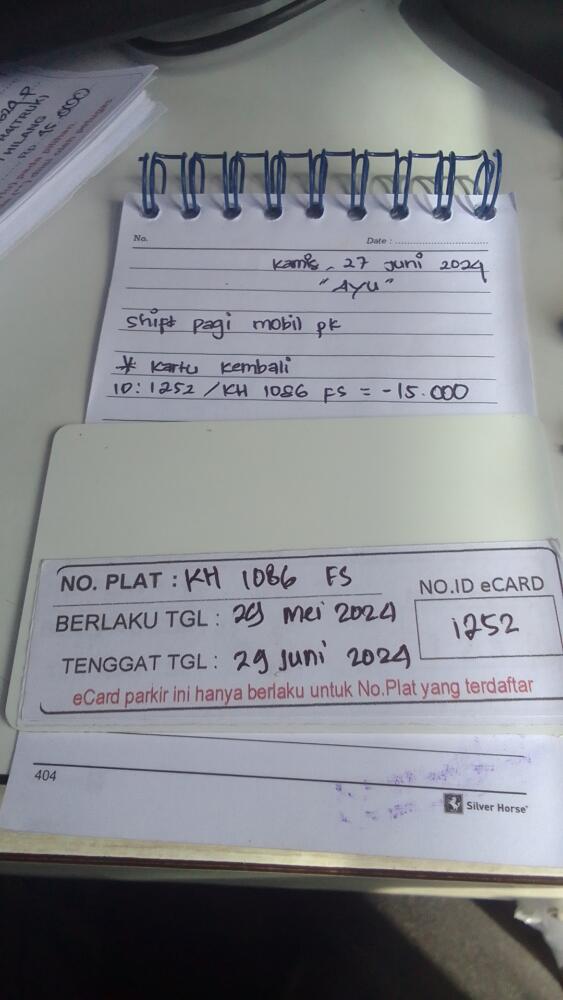 624 P
R4(TRUK)
HILANG
RP 45.000
No.
Date :
Kamis, 27 Juni 2024
"AYU"
shipt pagi mobil pk
* Kartu Kembali
ID: 1252 / KH 1086 FS = -15.000
NO. PLAT : KH 1086 FS
NO.ID eCARD
BERLAKU TGL : 29 Mei 2024
1252
TENGGAT TGL : 29 Juni 2024
eCard parkir ini hanya berlaku untuk No.Plat yang terdaftar
404
Silver Horse